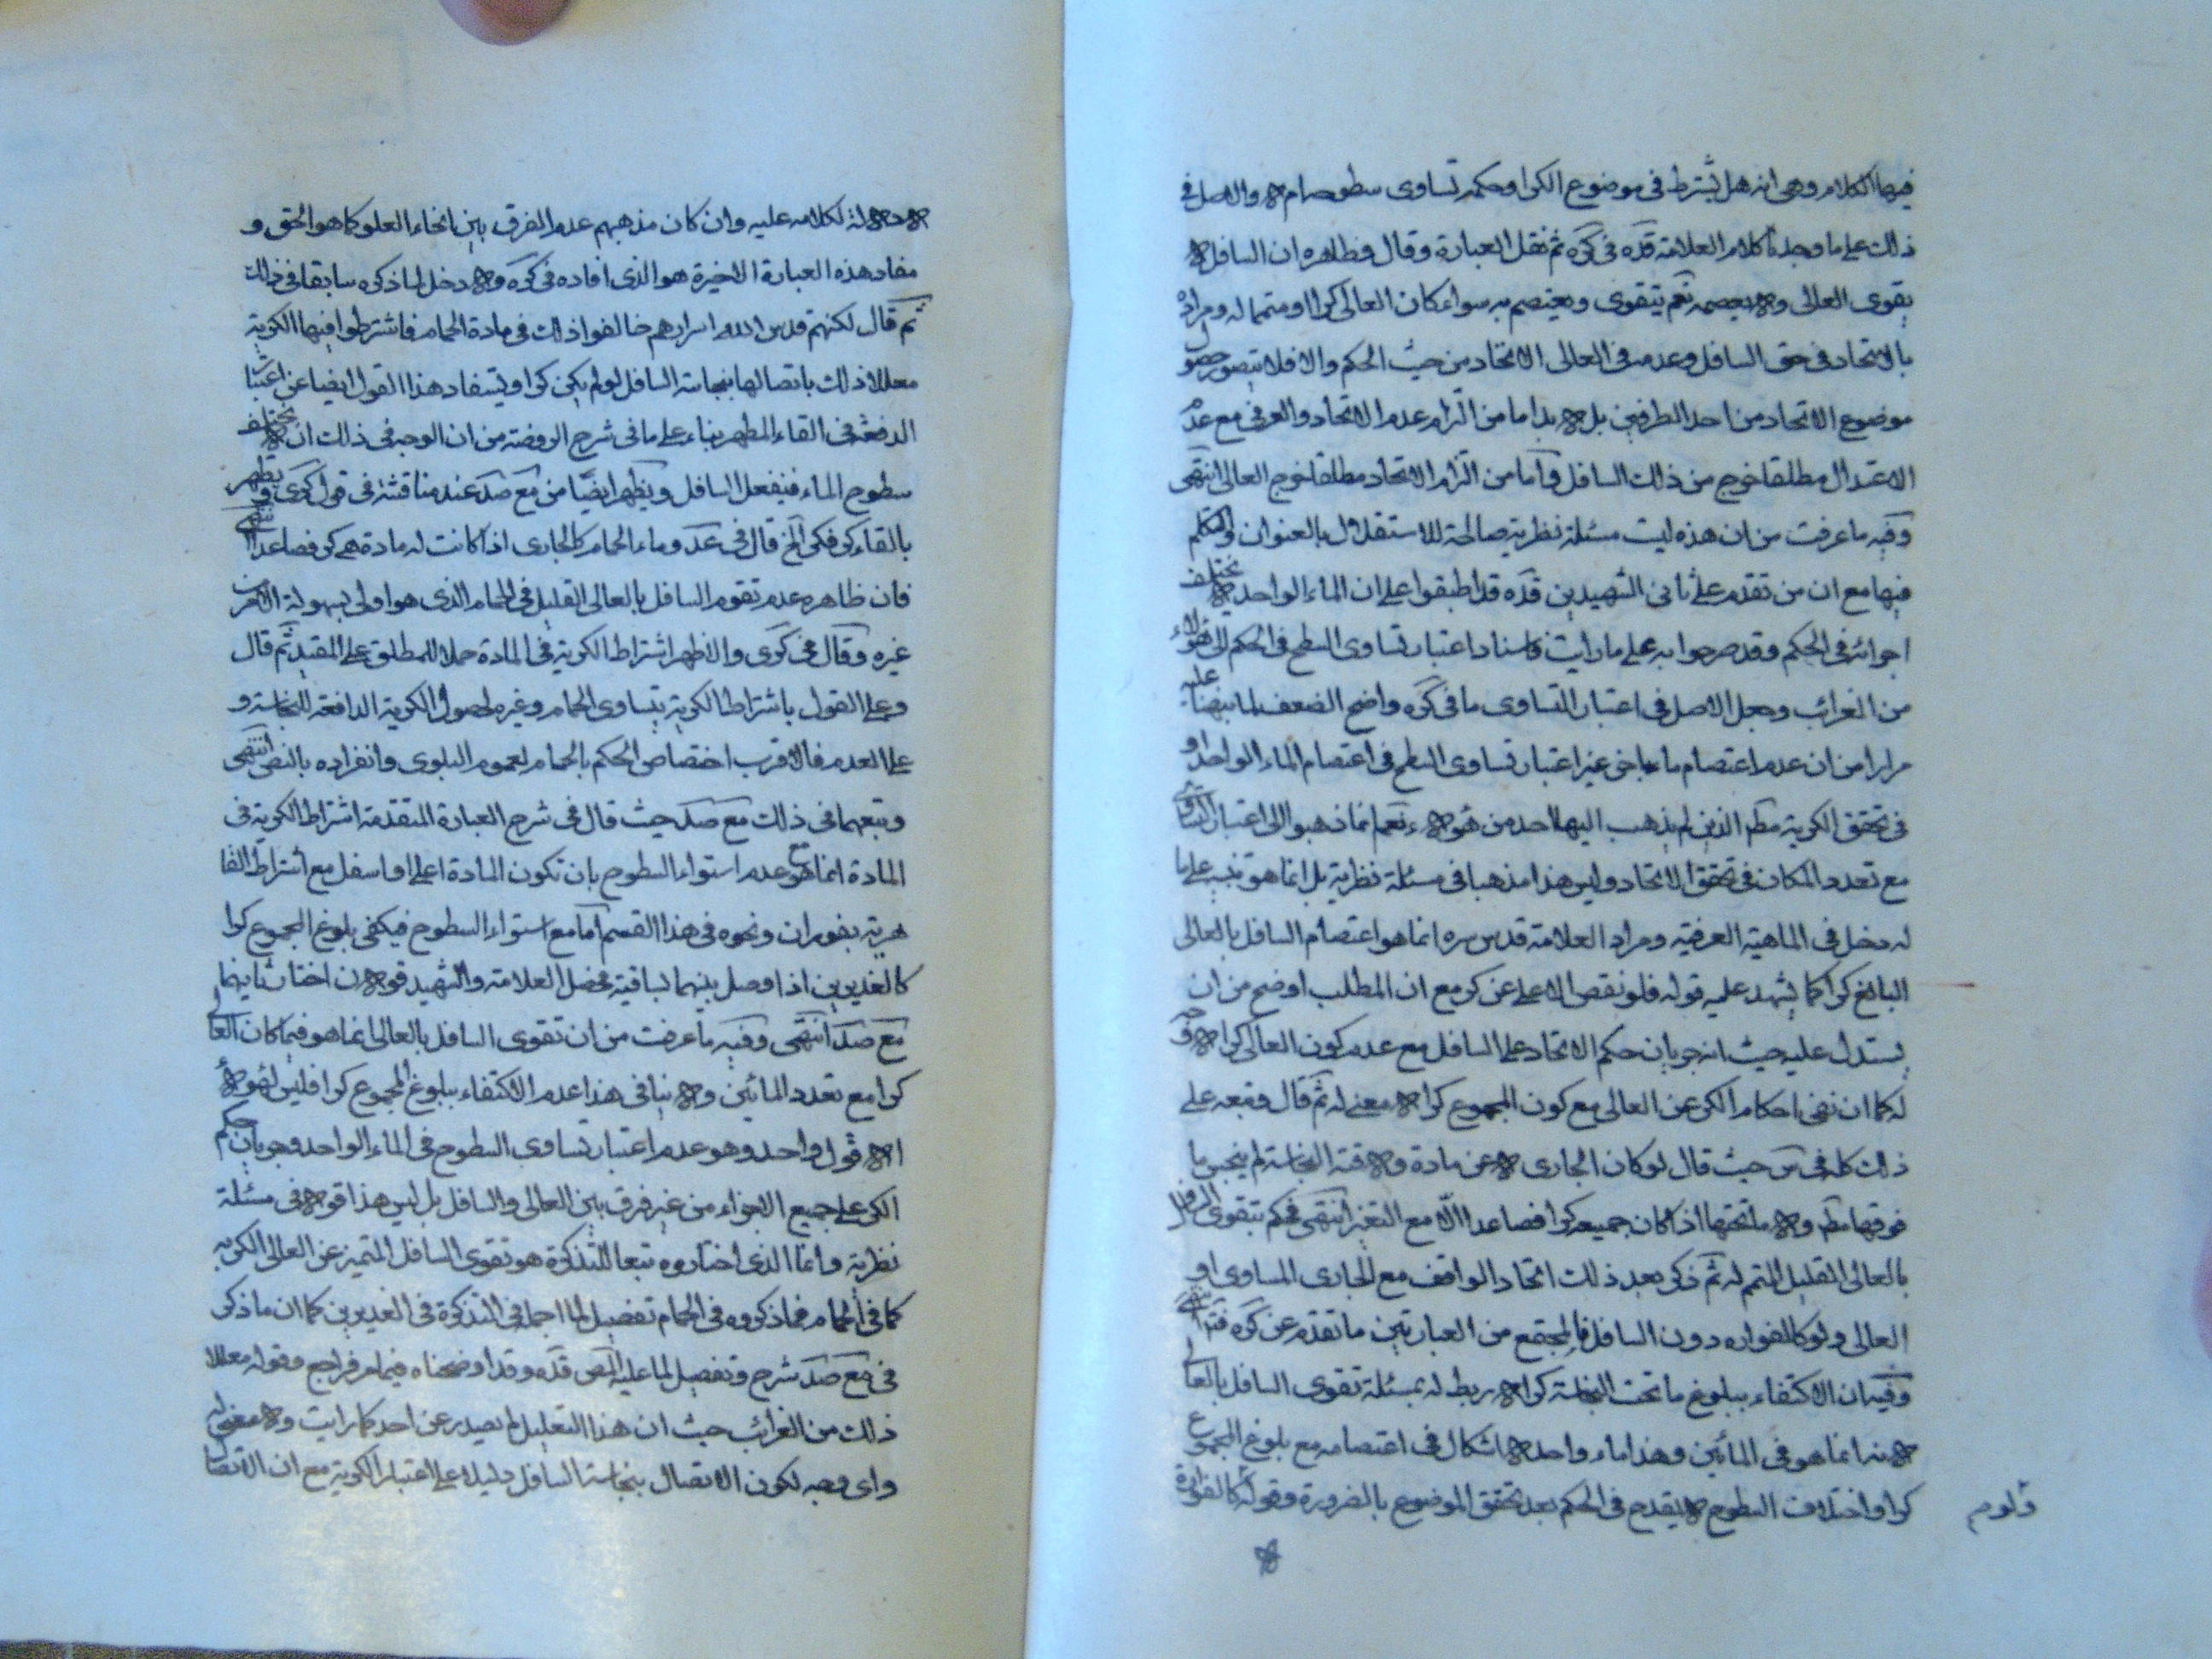 فيها الكلام وهي انه هل يشترط في موضوع الكر او حكمه تساوى سطوحه ام لا والاصل في
ذلك على ما وجدنا كلام العلامة قده في كره ثم نقل العبارة وقال وظاهره ان السافل لا
يقوى العالى ولا يعصمه نعم يتقوى ويعتصم به سواء كان العالى كرا او متمما له ومراده
بالاتحاد في حق السافل وعدمه في العالى الاتحاد من حيث الحكم والا فلا يتصور حصول
موضوع الاتحاد من احد الطرفين بل لا بد اما من التزام عدم الاتحاد والعرفى مع عدم
الاعتدال مطلقا خرج من ذلك السافل واما من التزام الاتحاد مطلقا خرج العالى انتهى
وفيه ما عرفت من ان هذه ليت مسئلة نظرية صالحة للاستقلال بالعنوان والتكلم
فيها مع ان من تقدم على ثانى الشهيدين قده قد اطبقوا على ان الماء الواحد لا يختلف
اجزائه في الحكم وقد صرحوا به على ما رايت فاسناد اعتبار تساوى السطح في الحكم الى هؤلاء
من الغرائب وجعل الاصل في اعتبار التساوى ما في كره واضح الضعف لما نبهنا عليه
مرارا من ان عدم اعتصام ماء باخر غير اعتبار تساوى السطح في اعتصام الماء الواحد او
في تحقق الكرية مطم الذين لم يذهب اليهما احد من هؤلاء نعم انما ذهبوا الى اعتبار التساوى
مع تعدد المكان في تحقق الاتحاد وليس هذا مذهبا في مسئلة نظرية بل انما هو تنبيه على ما
له دخل في الماهية العرفية ومراد العلامة قدس سره انما هو اعتصام السافل بالعالى
البالغ كرا كما يشهد عليه قوله فلو نقص الاعلى عن كر مع ان المطلب اوضح من ان
يستدل عليه حيث انه جريان حكم الاتحاد على السافل مع عدم كون العالى كرا لا وجه
له كما ان نفى احكام الكر عن العالى مع كون المجموع كرا لا معنى له ثم قال وتبعه على
ذلك كله في س حيث قال لو كان الجارى لا عن مادة ولاقته النجاسة لم ينجس ما
فوقها مطم ولا ما تحتها اذا كان جميعه كرا فصاعدا الا مع التغير انتهى فحكم بتقوى السافل
بالعالى القليل المتمم له ثم ذكر بعد ذلك اتحاد الواقف مع الجارى المساوى او
العالى ولو كالفواره دون السافل فالمجتمع من العبارتين ما تقدم عن كره
وفيه ان الاكتفاء ببلوغ ما تحت النجاسة كرا لا ربط له بمسئلة تقوى السافل بالعالى
لانه انما هو في المائين وهذا ماء واحد لا اشكال في اعتصامه مع بلوغ المجموع
كرا واختلاف السطوح لا يقدح في الحكم بعد تحقق الموضوع بالضرورة وقوله كالفوارة
لا دلالة لكلامه عليه وان كان مذهبهم عدم الفرق بين انحاء العلو كما هو الحق و
مفاد هذه العبارة الاخيرة هو الذى افاده في كره ولا دخل لما ذكره سابقا في ذلك
ثم قال لكنهم قدس الله اسرارهم خالفوا ذلك في مادة الحمام فاشترطوا فيها الكرية
معللا ذلك باتصالها بنجاسة السافل لو لم يكن كرا ويستفاد هذا القول ايضا عن اعتبار
الدفعة في القاء المطهر بناء على ما في شرح الروضة من ان الوجه في ذلك ان لا يختلف
سطوح الماء فينفعل السافل ويظهر ايضا من مع صد عند مناقشته في قول كرى ويطهر
بالقاء كر فكر الخ قال في عد وماء الحمام كالجارى اذا كانت له مادة هى كر فصاعدا
فان ظاهره عدم تقوم السافل بالعالى القليل في الحمام الذى هو اولى بسهولة الامر من
غيره وقال في كرى والاظهر اشتراط الكرية في المادة حملا للمطلق على المقيد ثم قال
وعلى القول باشتراط الكرية يتساوى الحمام وغيره لحصول الكرية الدافعة للنجاسة و
على العدم فالاقرب اختصاص الحكم بالحمام لعموم البلوى وانفراده بالنص انتهى
وتبعهما في ذلك مع صد حيث قال في شرح العبارة المتقدمة اشتراط الكرية في
المادة انما هو مع عدم استواء السطوح بان تكون المادة اعلى او اسفل مع اشتراط القا
هرية بفوران ونحوه في هذا القسم اما مع استواء السطوح فيكفى بلوغ المجموع كرا
كالغديرين اذا وصل بينهما بساقية فحصل العلامة والشهيد قولان اختار ثانيهما
مع صد انتهى وفيه ما عرفت من ان تقوى السافل بالعالى انما هو فيما كان العالى
كرا مع تعدد المائين ولا ينافى هذا عدم الاكتفاء ببلوغ المجموع كرا فليس لهؤلاء
الا قول واحد وهو عدم اعتبار تساوى السطوح في الماء الواحد وجريان حكم
الكر على جميع الاجزاء من غير فرق بين العالى والسافل بل ليس هذا قولا في مسئلة
نظرية وانما الذى اختاروه تبعا للتذكرة هو تقوى السافل المتميز عن العالى الكر به
كما في الحمام فما ذكروه في الحمام تفصيل لما اجمل في التذكرة في الغديرين كما ان ما ذكر
في مع صد شرح وتفصيل لما عليه المص قده وقد اوضحناه فيما مر فراجع وقوله معللا
ذلك من الغرائب حيث ان هذا التعليل لم يصدر عن احد كما رايت ولا معنى له
واى وجه لكون الاتصال بنجاسة السافل دليلا على اعتبار الكرية مع ان الاتصال